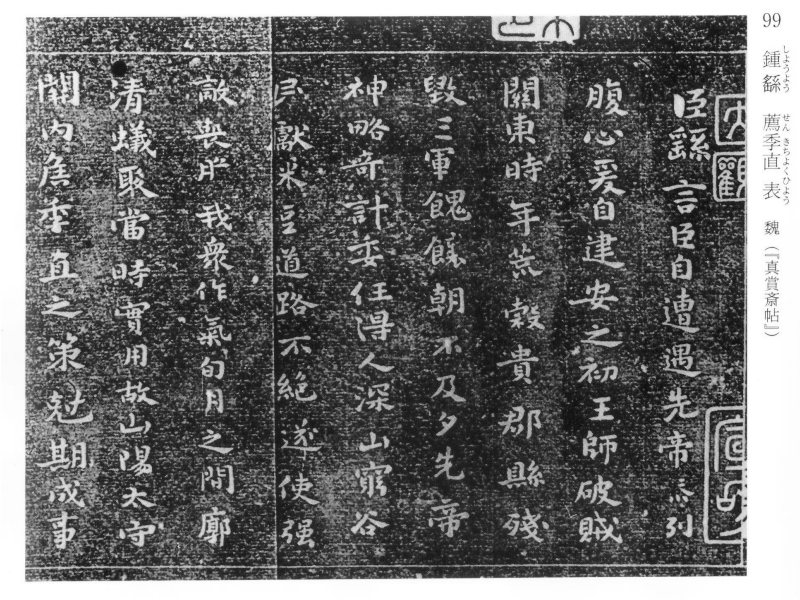 99 鍾繇 薦季直表 魏(『真賞斎帖』)
しようよう せんきちよくひよう
臣繇言臣自遭遇先帝忝列
腹心爰自建安之初王師破賊
關東時年荒穀貴郡縣殘
毀三軍餽饟朝不及夕先帝
神略奇計委任得人深山窮谷
民獻米豆道路不絶遂使强
敵喪膽我衆作氣旬月之間廓
清蟻聚當時實用故山陽太守
關内侯季直之策尅期成事